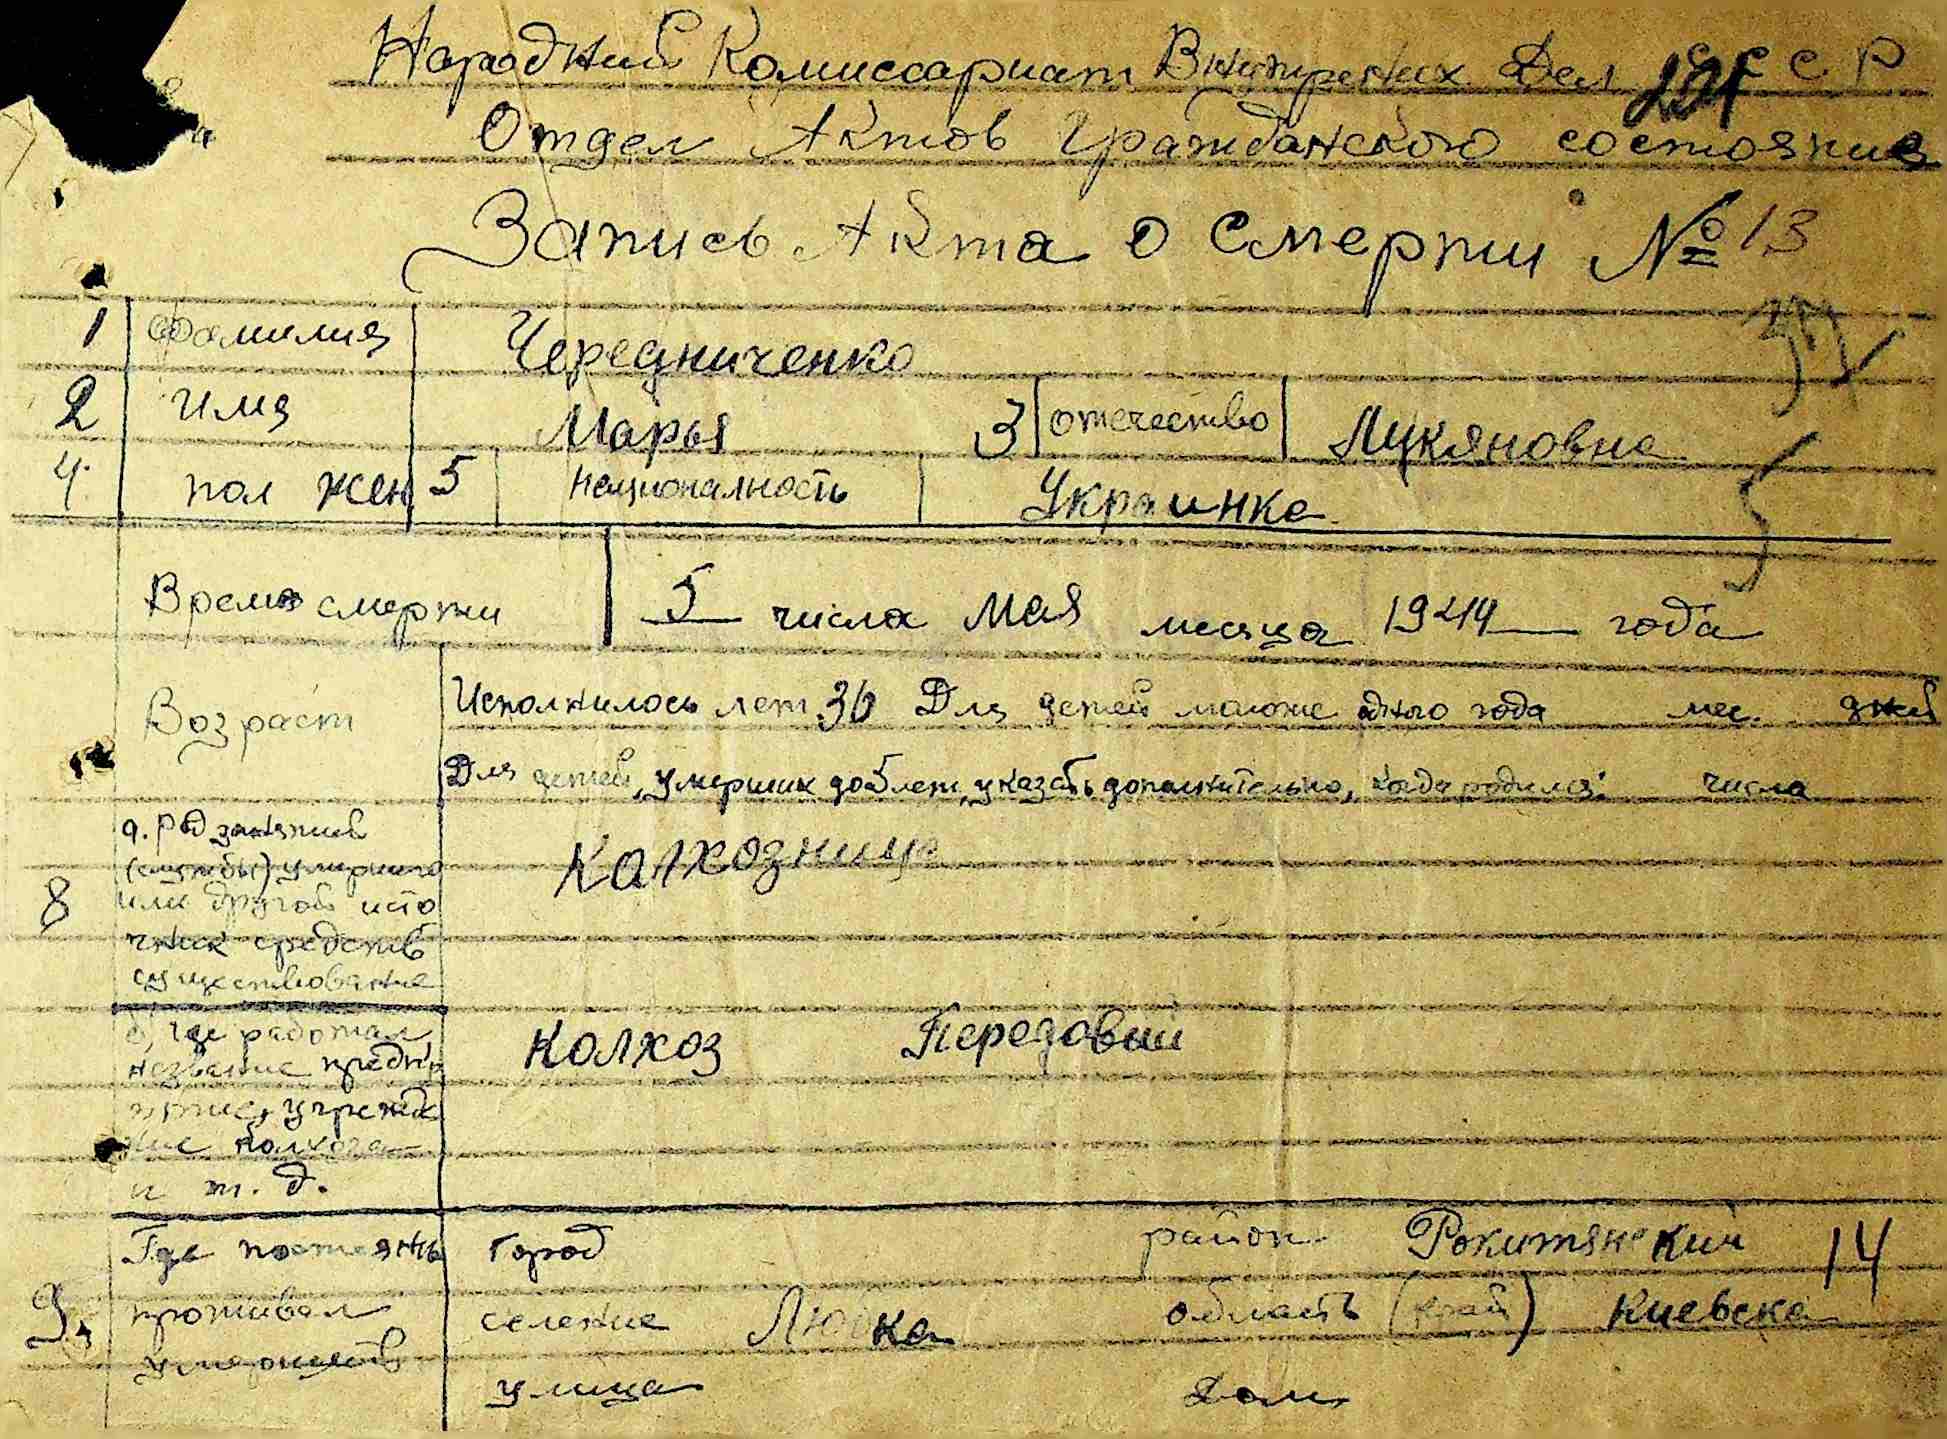 Народний Комиссариат Внитрених Дел С С. Р
Отдел Актов Гражданского состояния
Запись Акта о Смерти № 13
1 Фамилия Чередниченко
2 Имя Марья 3 отечество Лукяновна
4 пол жен 5 националность Украинка
Время смерти 5 числа Мая месяца 1944 года
Возраст Исполнилось лет 36 Для детей моложе одного года мес. дней
Для детей, умерших до 5 лет, указать дополнительно, когда родился: числа
8 а. род занятий
(службы) умершего
или другой исто
чник средств
существование
Колхозница
где работал
название предп
ятие, учрежде
ние колхоза
и т. д.
Колхоз Передовий
9. Где постоянь
проживал
умерший
город район Рокитянский 14
селение область (край) Киевска
улица дом